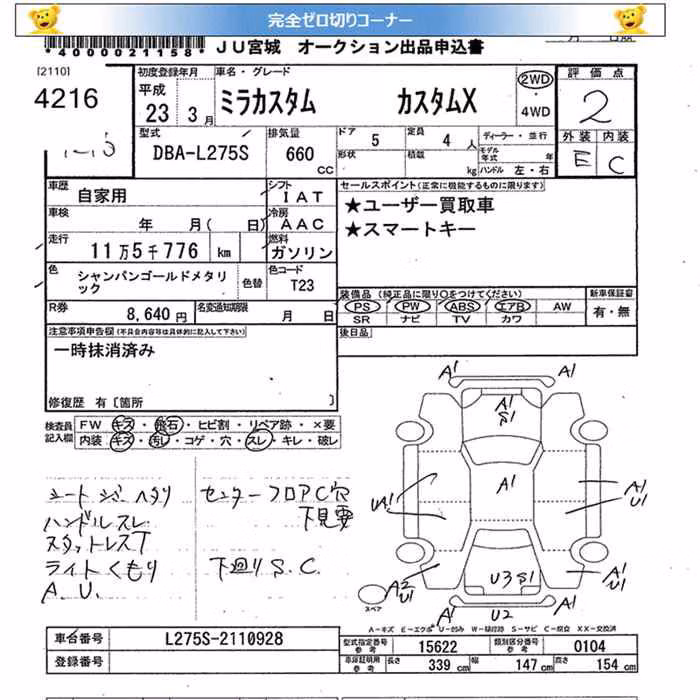 完全ゼロ切りコーナー
*4000021158*
JU宮城 オークション出品申込書
[2110]
4216
初度登録年月
平成
23 3月
車名・グレード
ミラカスタム カスタムX
2WD
・
4WD
評価点
2
外装 内装
E C
型式
DBA-L275S
排気量
660
CC
ドア 5
定員 4 人
形状
積載 kg
ディーラー・並行
モデル年式 年
ハンドル 左・右
車歴
自家用
シフト
IAT
車検
年 月( 日)
冷房
AAC
走行
11万5千776 km
燃料
ガソリン
色
シャンパンゴールドメタリック
色替
色コード
T23
R券
8,640円
名変通知期限
月 日
セールスポイント(正常に機能するものに限ります)
★ユーザー買取車
★スマートキー
装備品(純正品に限り○をつけてください)
PS PW ABS エアB AW
SR ナビ TV カワ
新車保証書
有・無
後日品
注意事項申告欄(不具合内容等は具体的に記入して下さい)
一時抹消済み
修復歴 有〔箇所 〕
検査員記入欄
FW キズ・飛石・ヒビ割・リペア跡・×要
内装 キズ・汚れ・コゲ・穴・スレ・キレ・破レ
シートシミヘタリ
ハンドルスレ
スタットレスT
ライトくもり
A.U.
センターフロアC穴
下見要
下廻りS.C.
A1 A1
A1
S1
A1
UA1
A1
U1
A2
U1
U3 S1
A1
U1
A1 U2 A1
スペア
A-キズ E-エクボ U-凹み W-補修跡 S-サビ C-腐食 XX-交換済
車台番号
L275S-2110928
登録番号
型式指定番号
参考
15622
類別区分番号
参考
0104
車庫証明用
参考
長さ 339 cm
幅 147 cm
高さ 154 cm